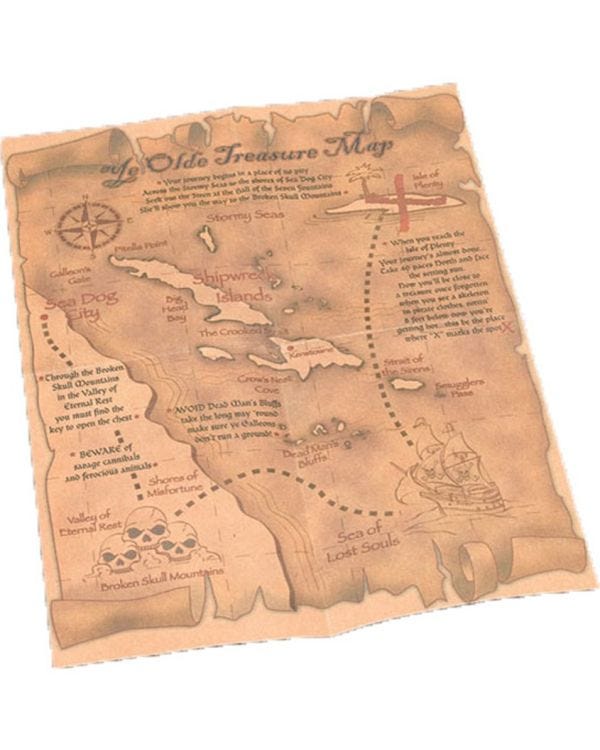 Ye Olde Treasure Map
* Your journey begins in a place of no pity
Across the Stormy Seas to the shores of Sea Dog City
Seek out the Siren at the Hall of the Seven Fountains
She'll show you the way to the Broken Skull Mountains *
Isle of
Plenty
Stormy Seas
Pitella Point
Galleon's
Gate
Sea Dog
City
Shipwreck
Islands
Big
Head
Bay
The Crooked
Kenstowne
Crow's Nest
Cove
* When you reach the
Isle of Plenty
Your journey's almost done..
Take 40 paces North and face
the setting sun.
Now you'll be close to
a treasure once forgotten
when you see a skeleton
in pirate clothes, rottin'
6 feet below now you're
getting hot... this be the place
where "X" marks the spot X
Strait of
the Sirens
Smugglers
Pass
* Through the Broken
Skull Mountains
in the Valley of
Eternal Rest
you must find the
key to open the chest *
* AVOID Dead Man's Bluffs
take the long way 'round
make sure ye Galleons
don't run a ground! *
* BEWARE of
savage cannibals
and ferocious animals *
Dead Man's
Bluffs
Shores of
Misfortune
Valley of
Eternal Rest
Sea of
Lost Souls
Broken Skull Mountains